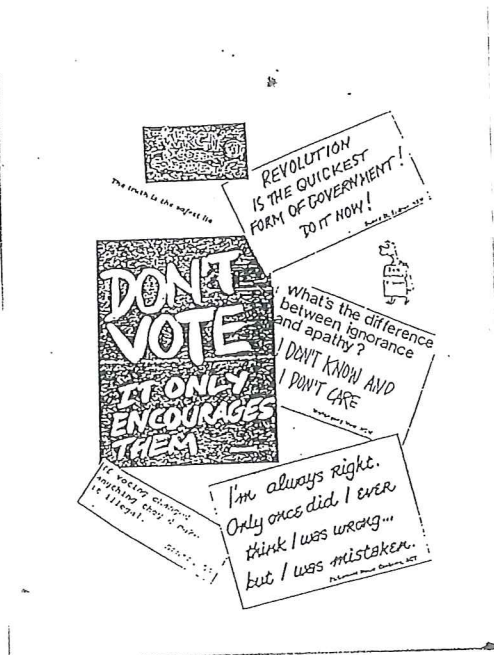 The truth is the safest lie
REVOLUTION
IS THE QUICKEST
FORM OF GOVERNMENT!
DO IT NOW!
DON'T
VOTE
IT ONLY
ENCOURAGES
THEM
What's the difference
between ignorance
and apathy?
I DON'T KNOW AND
I DON'T CARE
If voting changed
anything they'd make
it illegal.
I'm always right.
Only once did I EVER
think I was wrong...
but I was mistaken.